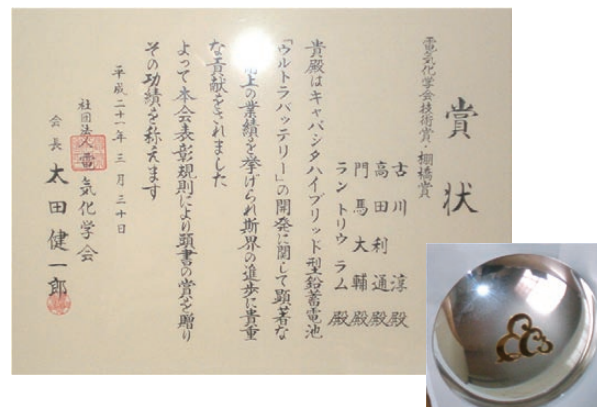 賞状
電気化学会技術賞・棚橋賞
古川淳殿
高田利通殿
門馬大輔殿
ラントリウラム殿
貴殿はキャパシタハイブリッド型鉛蓄電池
「ウルトラバッテリー」の開発に関して顕著な
上の業績を挙げられ斯界の進歩に貴重
な貢献をされました
よって本会表彰規則により頭書の賞を贈り
その功績を称えます
平成二十一年三月三十日
社団法人電気化学会
会長 太田健一郎